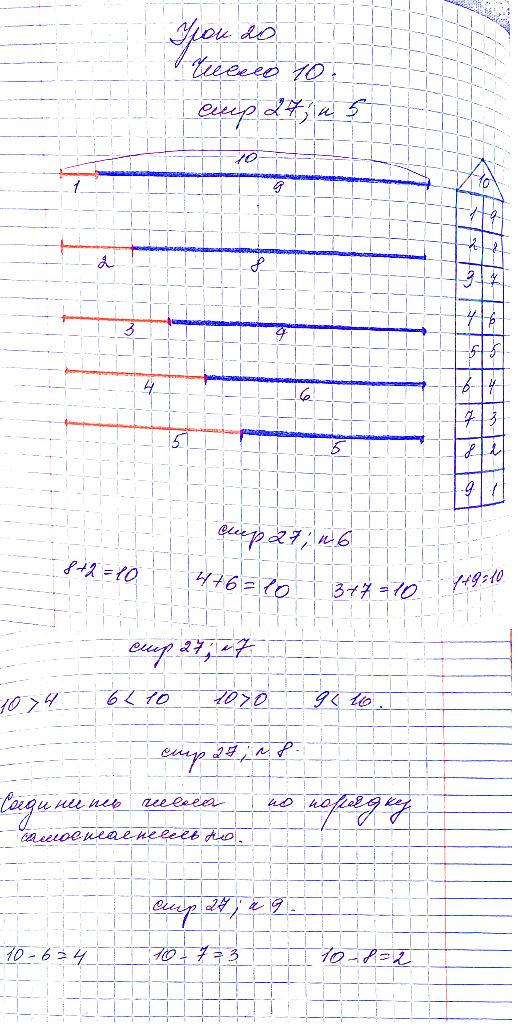 Урок 20
Число 10.
стр 27; n 5
10
1 9
2 8
3 7
4 6
5 5
10
1 9
2 8
3 7
4 6
5 5
6 4
7 3
8 2
9 1
стр 27; n 6
8+2=10 4+6=10 3+7=10 1+9=10
стр 27; n 7
10 > 4 6 < 10 10 > 0 9 < 10.
стр 27; n 8.
Соединить числа по порядку
самостоятельно.
стр 27; n 9.
10-6=4 10-7=3 10-8=2